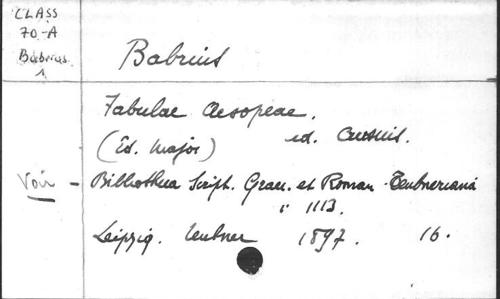 CLASS
70-A
Babrius
1
Babrius
Fabulae Aesopeae.
(Ed. Major) ed. Crusius.
Voir - Bibliotheca Script. Graec. et Roman Teubneriana
" 1113.
Leipzig. Teubner 1897. 16.